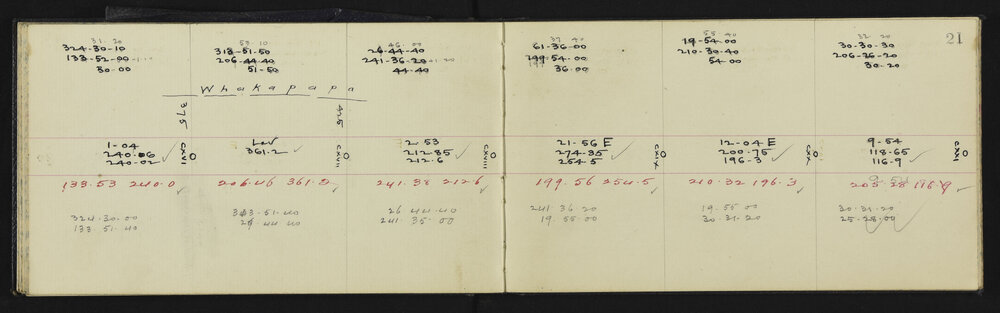 31 20
324-30-10
133-52-00
30-00
59 10
313-51-50
206-44-40
51-50
46 00
26-44-40
241-36-20
44-40
37 40
61-36-00
199-54-00
36-00
55 40
19-54-00
210-30-40
54-00
32 20
30-30-30
206-26-20
30-20
21
Whakapapa
375
425
1-04
240-06
240-02
CXVI
Lev
361-2
CXVII
2 53
212-85
212-6
CXVIII
21-56 E
274-35
254-5
CXIX
12-04 E
200-75
196-3
CXX
9-54
118-65
116-9
CXXI
133-53 240-0
206-46 361-2
241-38 212-6
199-56 254-5
210-32 196-3
205-28 116-9
324-30-00
133-51-40
313-51-40
26-44-40
26 44-40
241 35-00
241 36 20
19-55 00
19-55 00
30-31-20
30-31-20
25-28-00